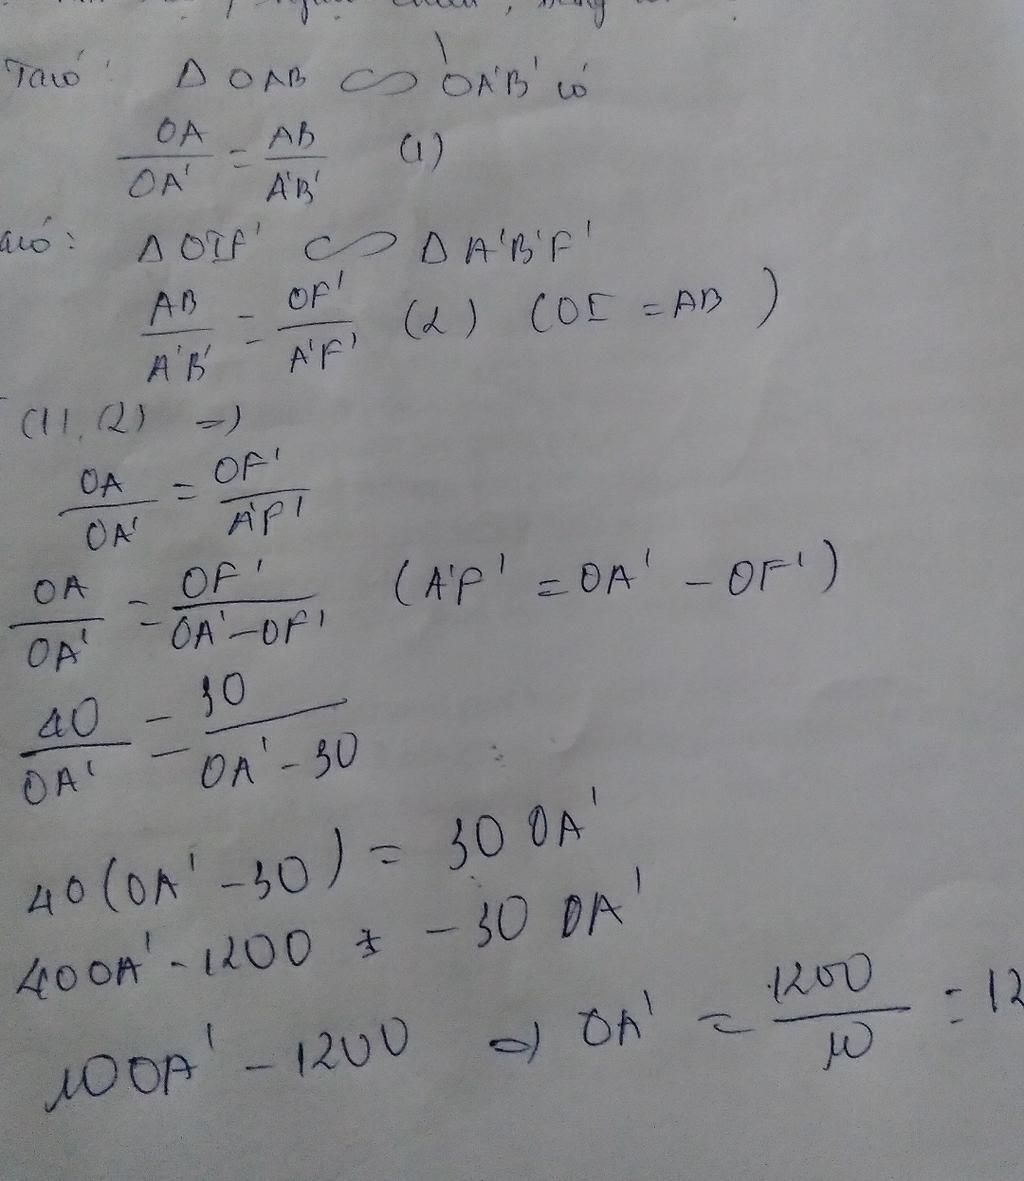 Ta có: Δ OAB ∽ OA'B' có
OA/OA' = AB/A'B' (1)
Ta có: Δ OIF' ∽ Δ A'B'F'
AB/A'B' = OF'/A'F' (2) (OI = AB)
(1), (2) =)
OA/OA' = OF'/A'F'
OA/OA' = OF'/OA'-OF' (A'F' = OA' - OF')
40/OA' = 30/OA' - 30
40(OA' - 30) = 30 OA'
40OA' - 1200 = - 30 OA'
10OA' - 1200 =) OA' = 1200/10 = 12